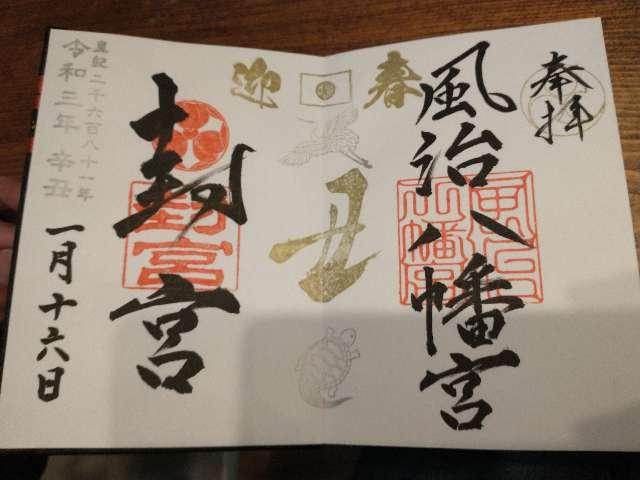 奉拝
風治八幡宮
迎春
丑
封宮
封宮
皇紀二千六百八十一年
令和三年 辛丑
一月十六日